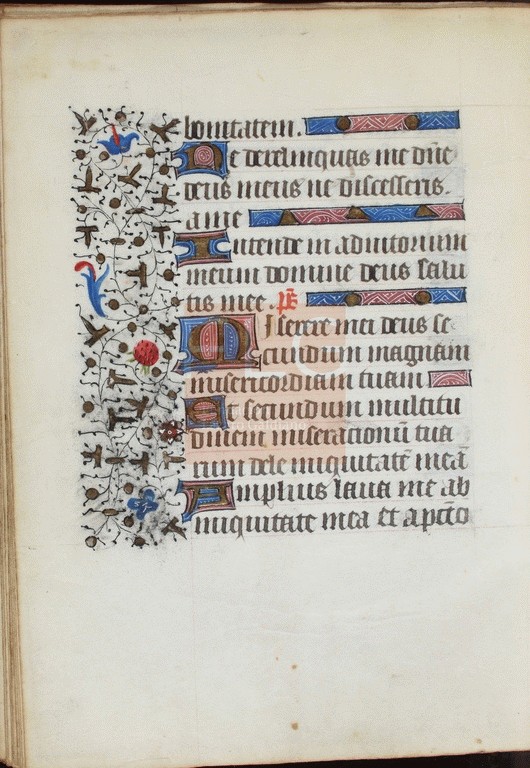 bonitatem.
Ne derelinquas me dn̄e
deus meus ne discesseris.
a me
Intende in adiutorium
meum domine deus salu
tis mee. p̄s
Miserere mei deus se
cundum magnam
misericordiam tuam
Et secundum multitu
dinem miserationū tua
rum dele iniquitatē meā
Amplius laua me ab
iniquitate mea et a pcc̄o